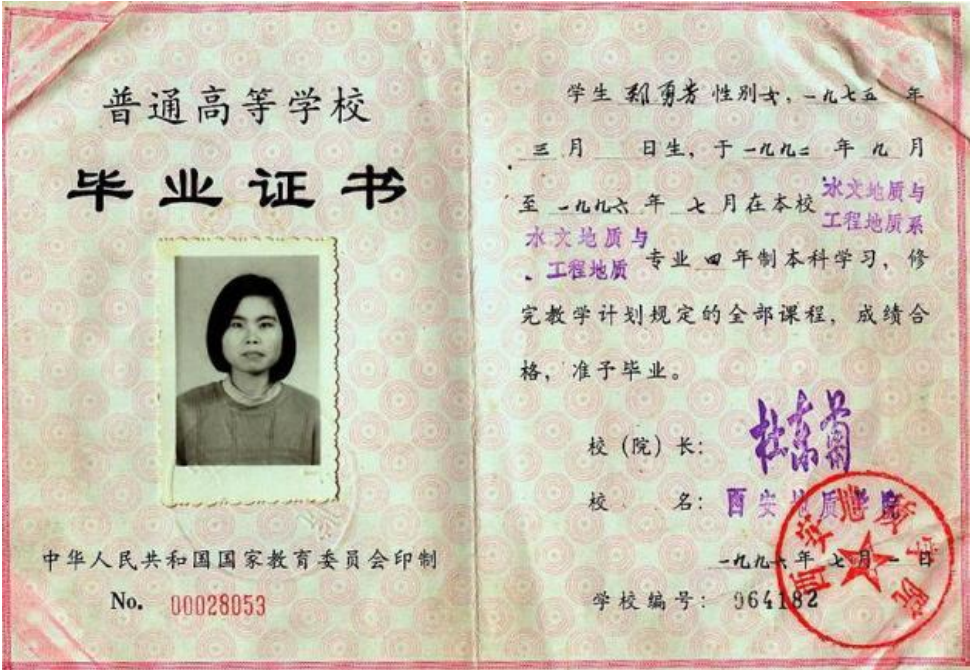 普通高等学校
毕业证书
中华人民共和国国家教育委员会印制
No. 00028053
学生 郑勇芳 性别女,一九七五 年
三月 日生,于 一九九二 年 九 月
至 一九九六 年 七 月在本校 水文地质与
工程地质系
水文地质与
工程地质 专业 四 年制本科学习,修
完教学计划规定的全部课程,成绩合
格,准予毕业。
校(院)长:
校 名:西安地质学院
一九九六年 七月 一 日
学校编号:964182
西安地质学院